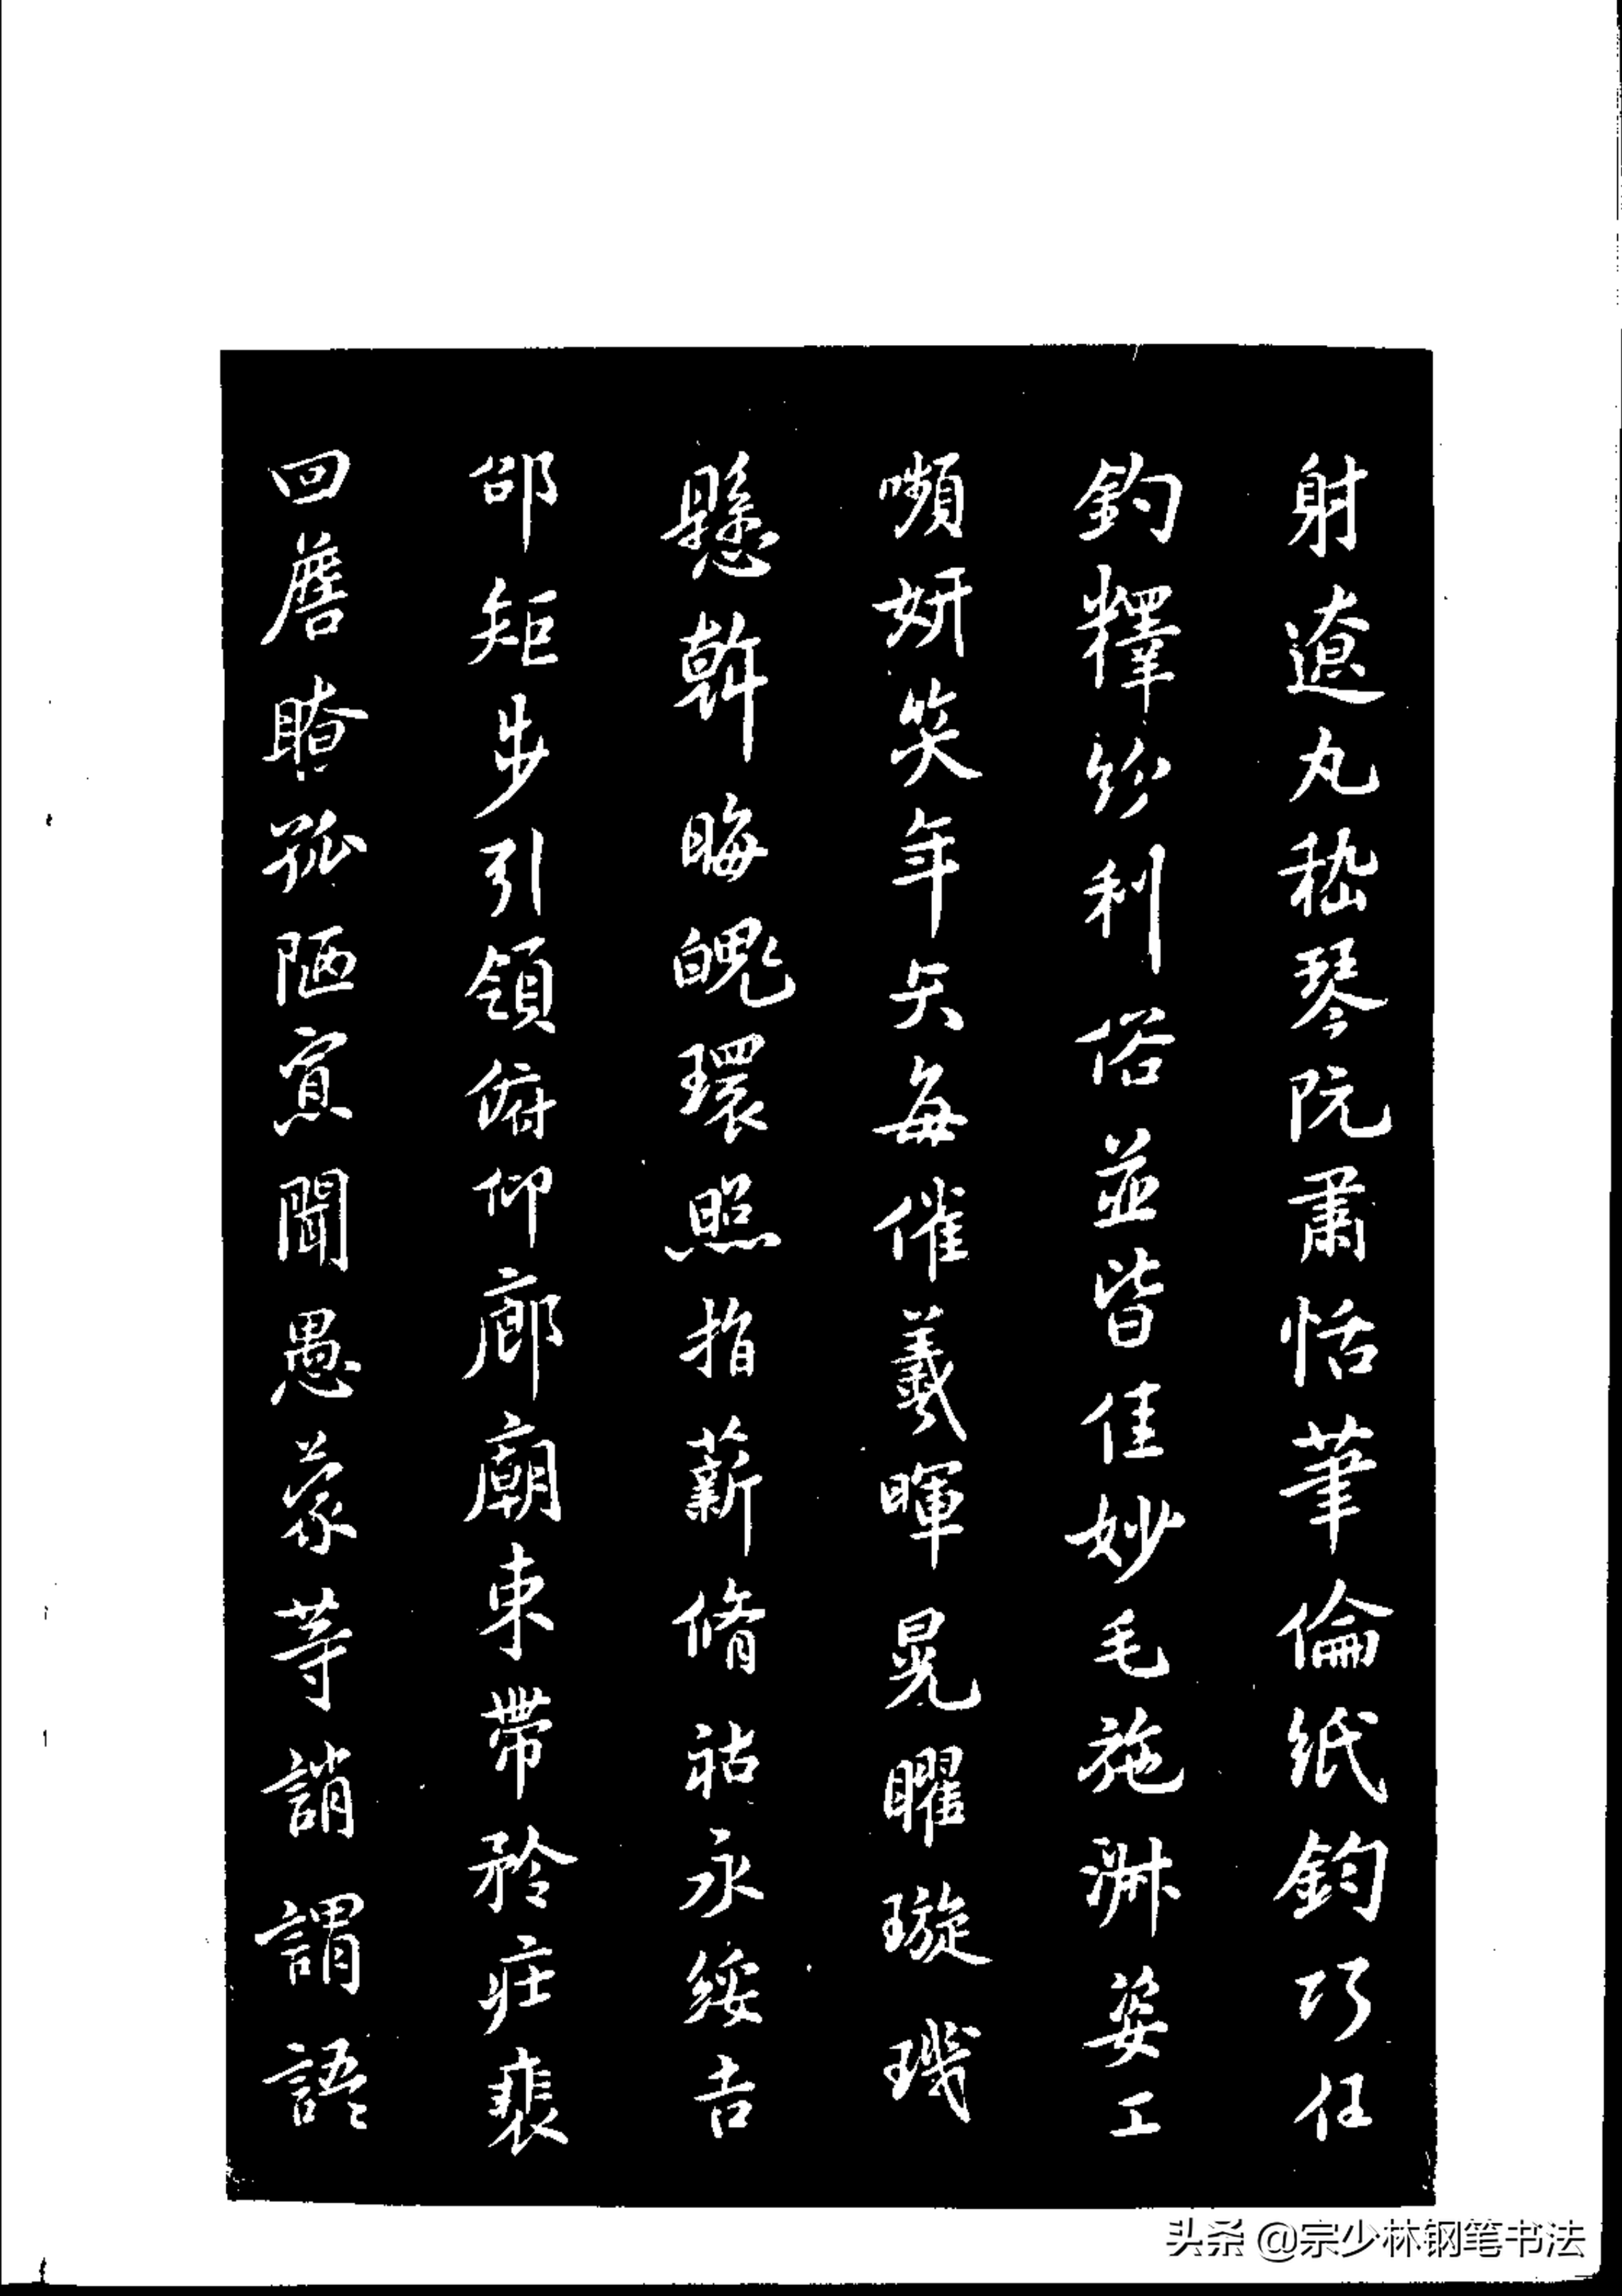 射遼丸嵇琴阮肅恬筆倫紙鈞巧任
釣釋紛利俗並皆佳妙毛施淑姿工
嚬妍笑年矢每催羲暉晃曜璇璣
懸斡晦魄環照指薪脩祜永綏吉
邵矩步引領俯仰廊廟束帶矜莊裴
回瞻眺孤陋寡聞愚蒙等誚謂語
头条 @宗少林钢笔书法